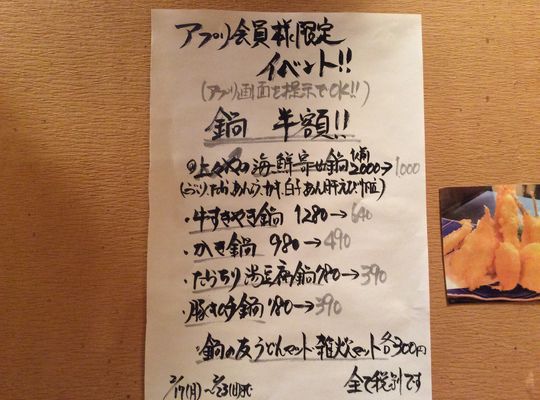 アプリ会員様限定
イベント!!
(アプリ画面を提示でOK!!)
鍋 半額!!
海鮮寄せ鍋 1人前 2000→1,000
・牛すきやき鍋 1280→640
・かき鍋 980→490
・たらちり湯豆腐鍋 780→390
・豚キムチ鍋 780→390
鍋の友うどんセット・雑炊セット各300円
2/17(月)～2/23(日)まで 全て税別です